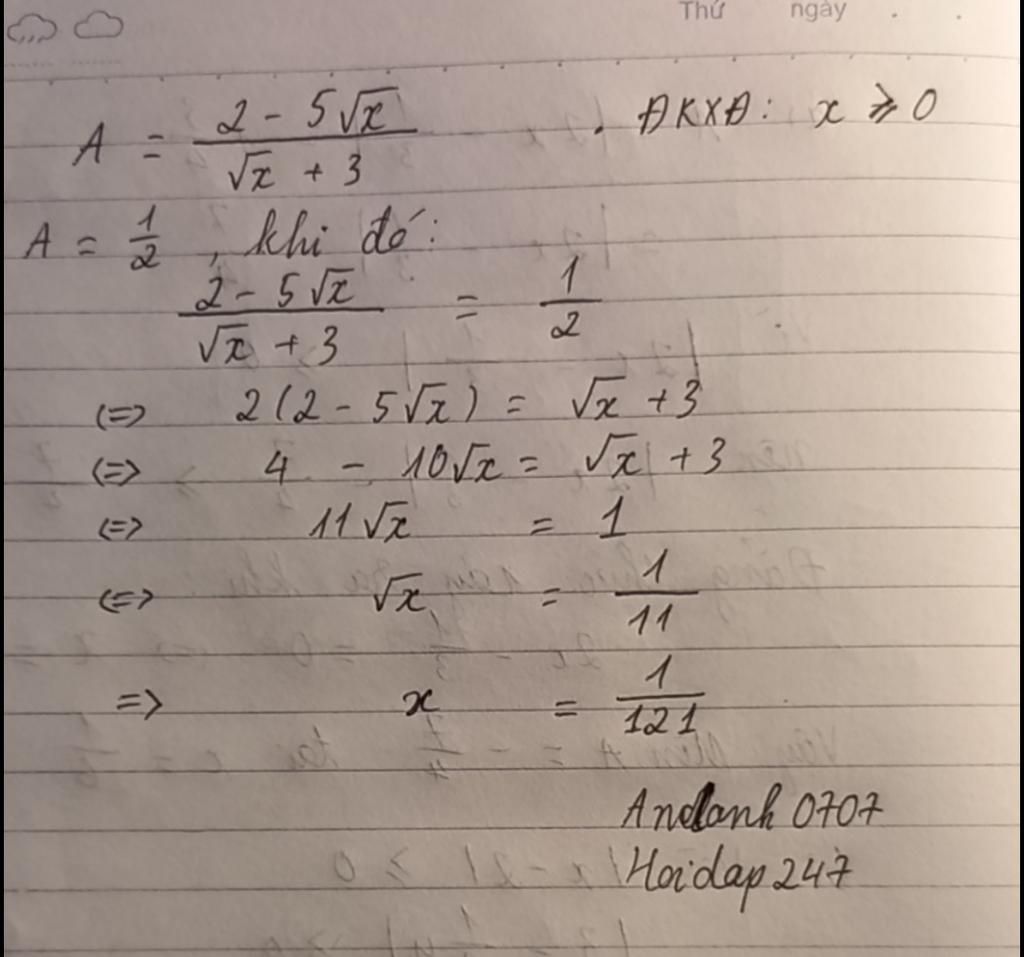 Thứ ngày . .
A = (2 - 5√x)/(√x + 3) . ĐKXĐ: x ⩾ 0
A = 1/2 , khi đó:
(2 - 5√x)/(√x + 3) = 1/2
(=) 2(2 - 5√x) = √x + 3
(=) 4 - 10√x = √x + 3
(=) 11√x = 1
(=) √x = 1/11
=> x = 1/121
0707
Hoidap 247